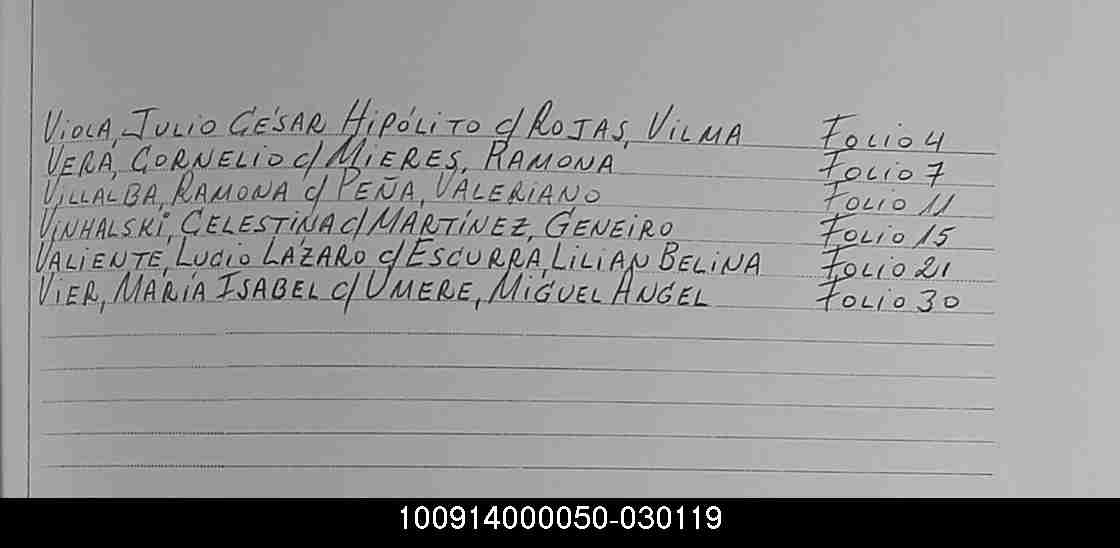 Viola, Julio César Hipólito c/ Rojas, Vilma Folio 4
Vera, Cornelio c/ Mieres, Ramona Folio 7
Villalba, Ramona c/ Peña, Valeriano Folio 11
Vinhalski, Celestina c/ Martínez, Geneiro Folio 15
Valiente, Lucio Lázaro c/ Escurra, Lilian Belina Folio 21
Vier, María Isabel c/ Umere, Miguel Angel Folio 30
100914000050-030119